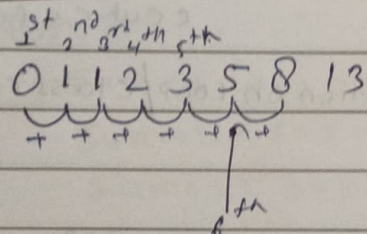 1st 2nd 3rd 4th 5th
0 1 1 2 3 5 8 13
+ + + + + +
6th